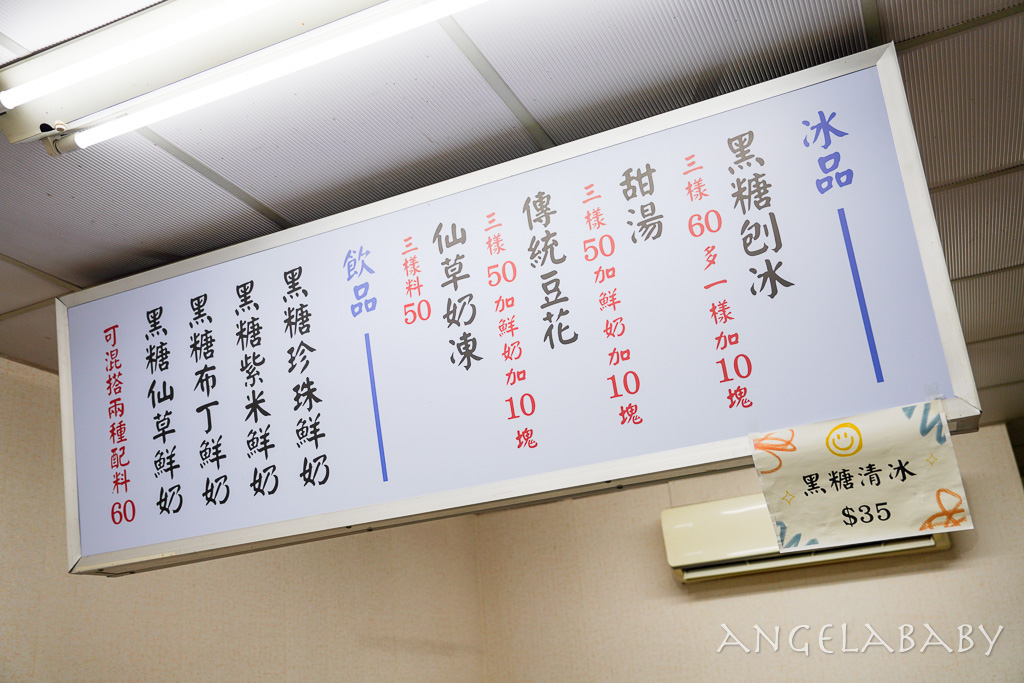 冰品
黑糖刨冰
三樣60多一樣加10塊
甜湯
三樣50加鮮奶加10塊
傳統豆花
三樣50加鮮奶加10塊
仙草奶凍
三樣料50
飲品
黑糖珍珠鮮奶
黑糖紫米鮮奶
黑糖布丁鮮奶
黑糖仙草鮮奶
可混搭兩種配料60
黑糖清冰
$35
ANGELABABY